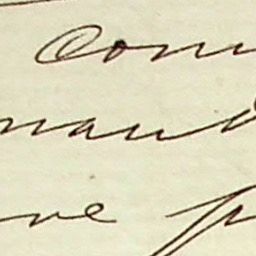 Com
mand
ve p